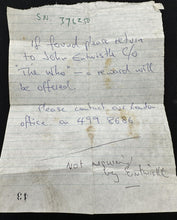 SN. 376250
If found please return
to John Entwistle C/o
"The Who" – a reward will
be offered.
Please contact our London
office on 499 8686
Not
by Entwistle